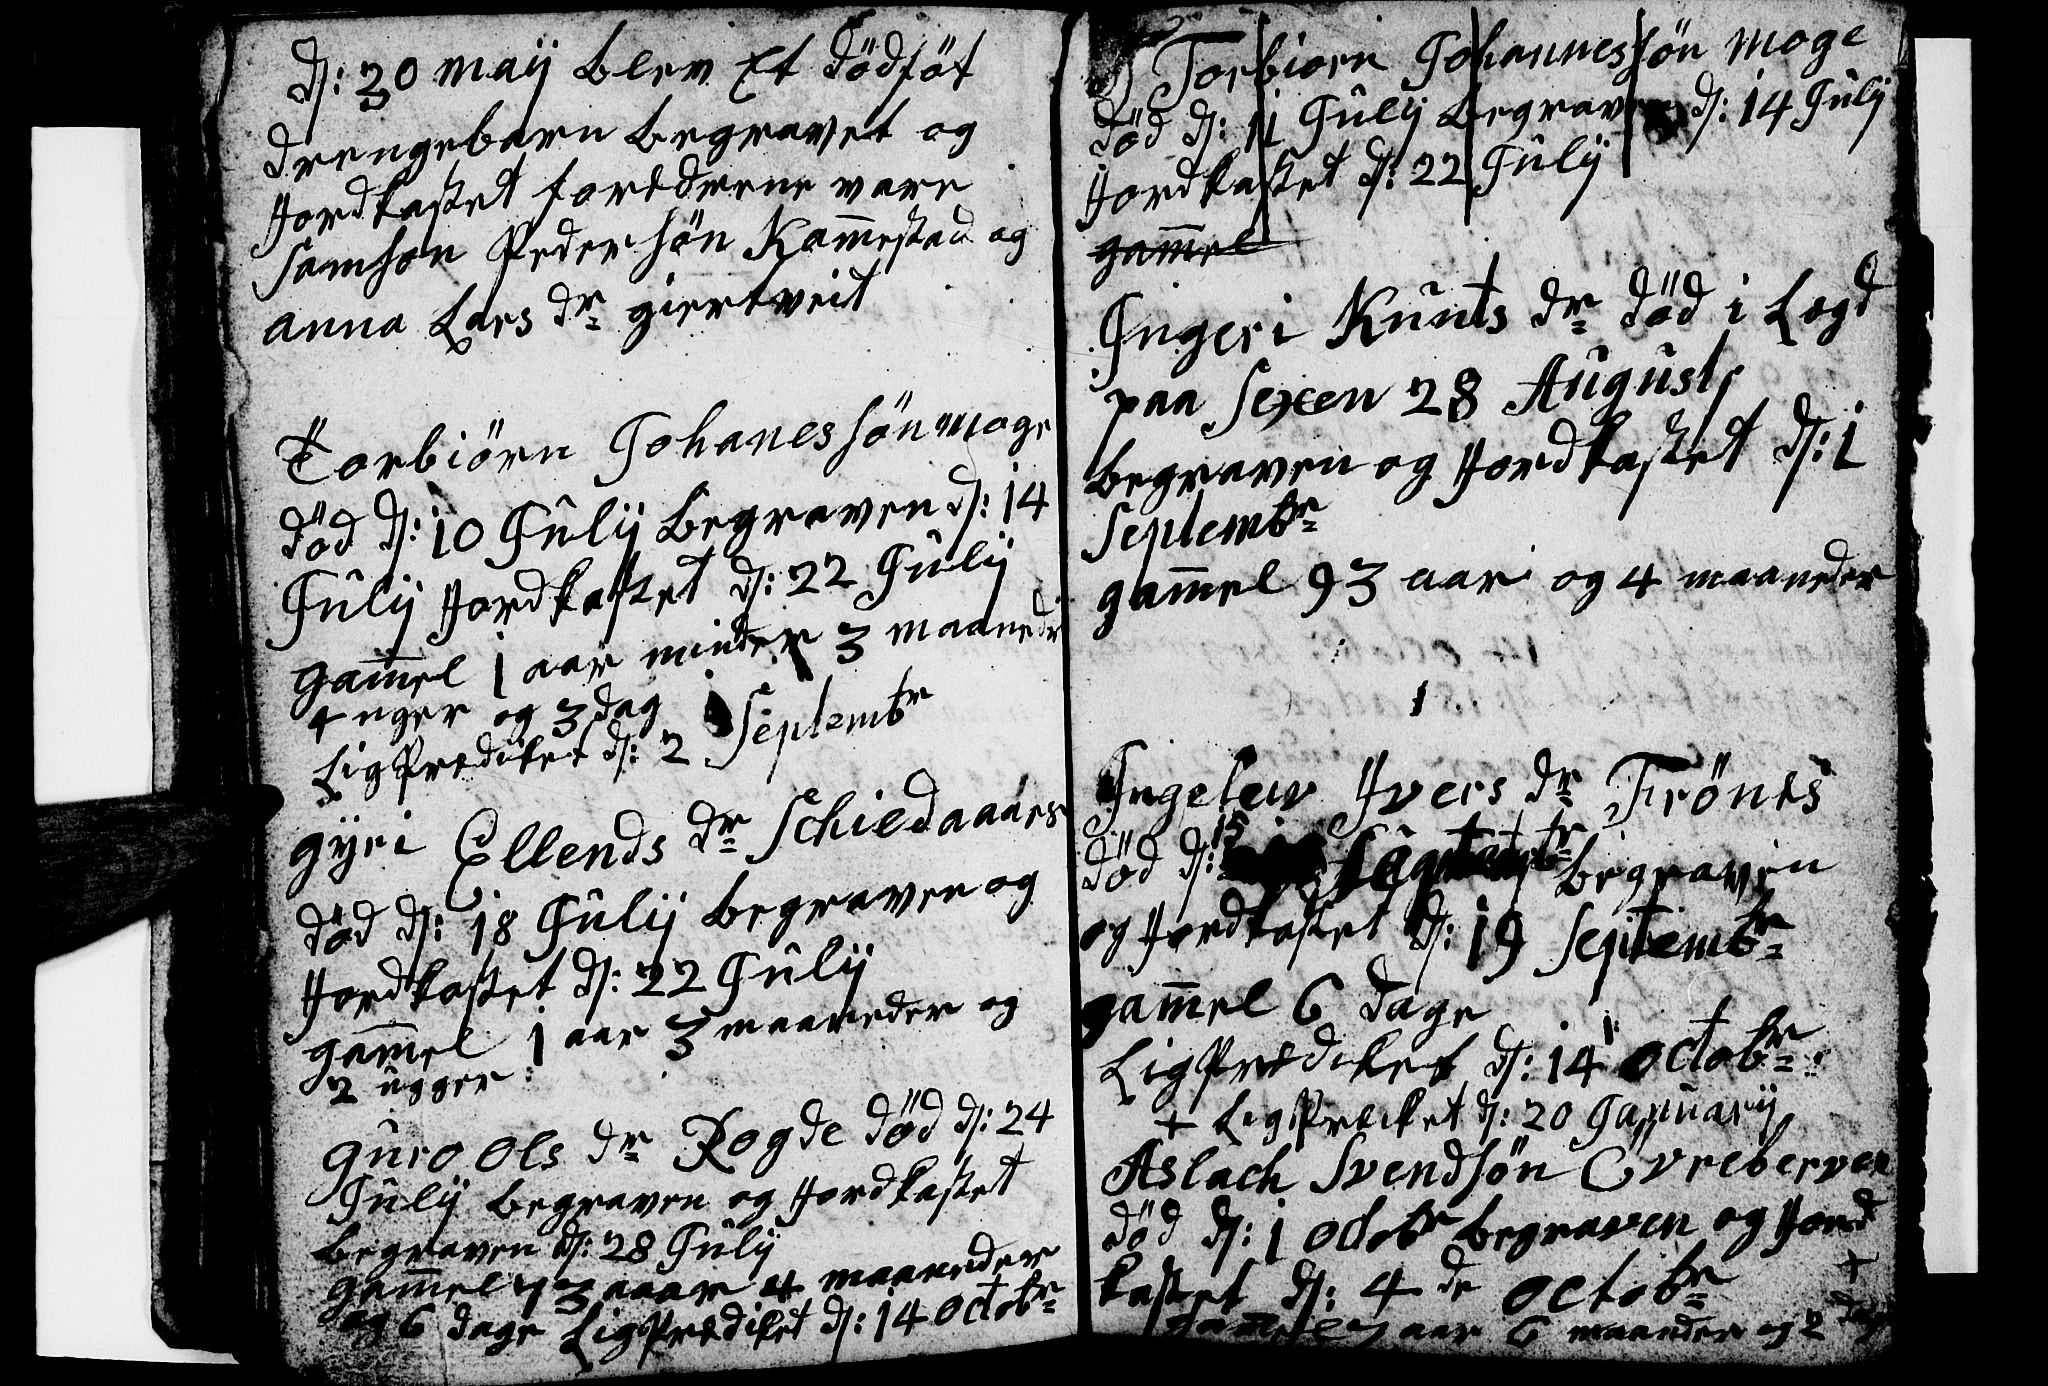 d: 30 maij blew Et dödföt
drengebarn begravet og
Hordkastet foreldrene vare
Samson Pedersön Kam̅estad og
anna Lars dr giertveit
Torbiörn Johanessön moge
död d: 10 Jûlij begraven d: 14
Jûlij Hordkastet d: 22 Jûlij
gam̅el 1 aar minder 3 maaneder
4 uger og 3 dag
LigPrediket d: 2 Septembr
gÿri Ellends dr Schiedaaars
död d: 18 Jûlij begraven og
Hordkastet d: 22 Jûlij
gam̅el 1 aar 3 maaneder og
2 ûgger
gûro Ols dr Rogde död d: 24
Jûlij begraven og Hordkastet
begraven d: 28 Jûlij
gam̅el 73 aaar 4 maaneder
og 6 dage LigPrediket d: 14 Octobr
Torbiorn Johannessön moge
död d: 11 Jûlij begraven d: 14 Jûlij
Hordkastet d: 22 Jûlij
gam̅el
Jngeri Kûnts dr död i Logd
paa Sexen 28 Augusti
begraven og Hordkastet d: 1
Septembr
gam̅el 93 aar og 4 maaneder
Jngelew Jvers dr Frönes
död d: 15 begraven
og Hordkastet d: 19 Septembr
gam̅el 6 dage
LigPrediket d: 14 Octobr
+ LigPreciket d: 20 Januarij
Aslach Svendsön Evreberven
död d: 1 Octobr begraven og Hord
kastet d: 4 de Octobr +
aar 6 maander og 2 dage